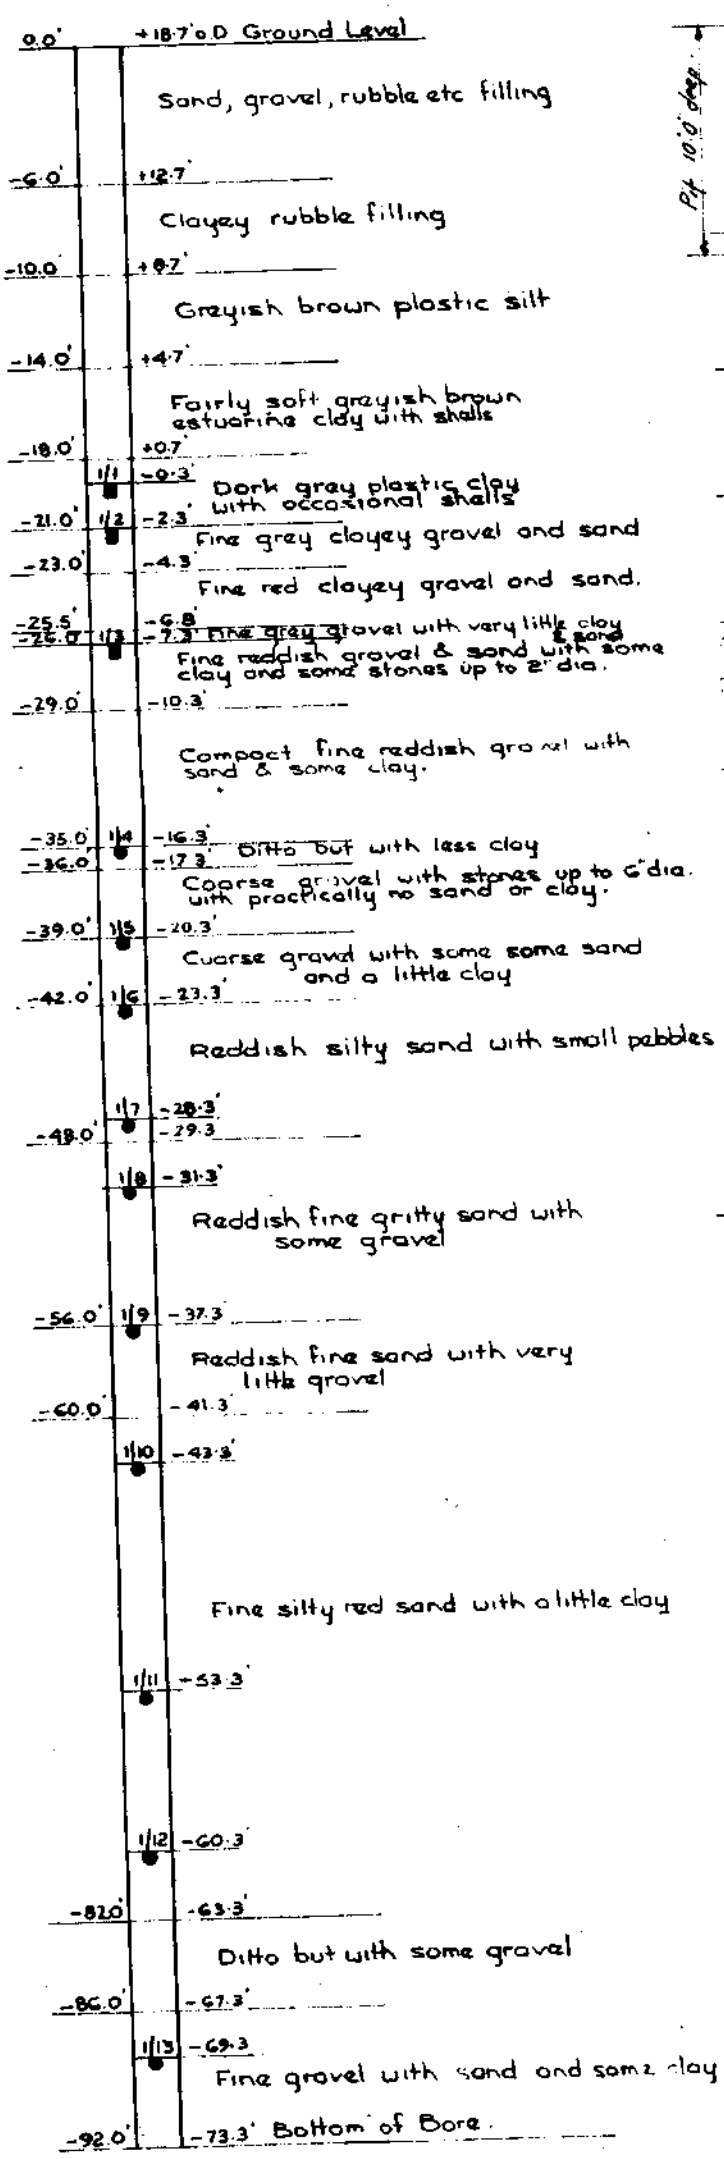 0.0' +18.7' O.D Ground Level
Sand, gravel, rubble etc filling
Pit 10'.0" deep
-6.0' +12.7'
Clayey rubble filling
-10.0' +8.7'
Greyish brown plastic silt
-14.0' +4.7'
Fairly soft greyish brown
estuarine clay with shells
-18.0' +0.7'
1/1 -0.3'
Dark grey plastic clay
with occasional shells
-21.0' 1/2 -2.3'
Fine grey clayey gravel and sand
-23.0' -4.3'
Fine red clayey gravel and sand.
-25.5' -6.8'
-26.0' 1/3 -7.3' Fine grey gravel with very little clay
& sand
Fine reddish gravel & sand with some
clay and some stones up to 2" dia.
-29.0' -10.3'
Compact fine reddish gravel with
sand & some clay.
-35.0' 1/4 -16.3'
Ditto but with less clay
-36.0' -17.3'
Coarse gravel with stones up to 6" dia.
with practically no sand or clay.
-39.0' 1/5 -20.3'
Coarse gravel with some some sand
and a little clay
-42.0' 1/6 -23.3'
Reddish silty sand with small pebbles
1/7 -28.3'
-48.0' -29.3
1/8 -31.3'
Reddish fine gritty sand with
some gravel
-56.0' 1/9 -37.3'
Reddish fine sand with very
little gravel
-60.0' -41.3'
1/10 -43.3'
Fine silty red sand with a little clay
1/11 -53.3'
1/12 -60.3'
-82.0' -63.3'
Ditto but with some gravel
-86.0' -67.3'
1/13 -69.3
Fine gravel with sand and some clay
-92.0' -73.3' Bottom of Bore.